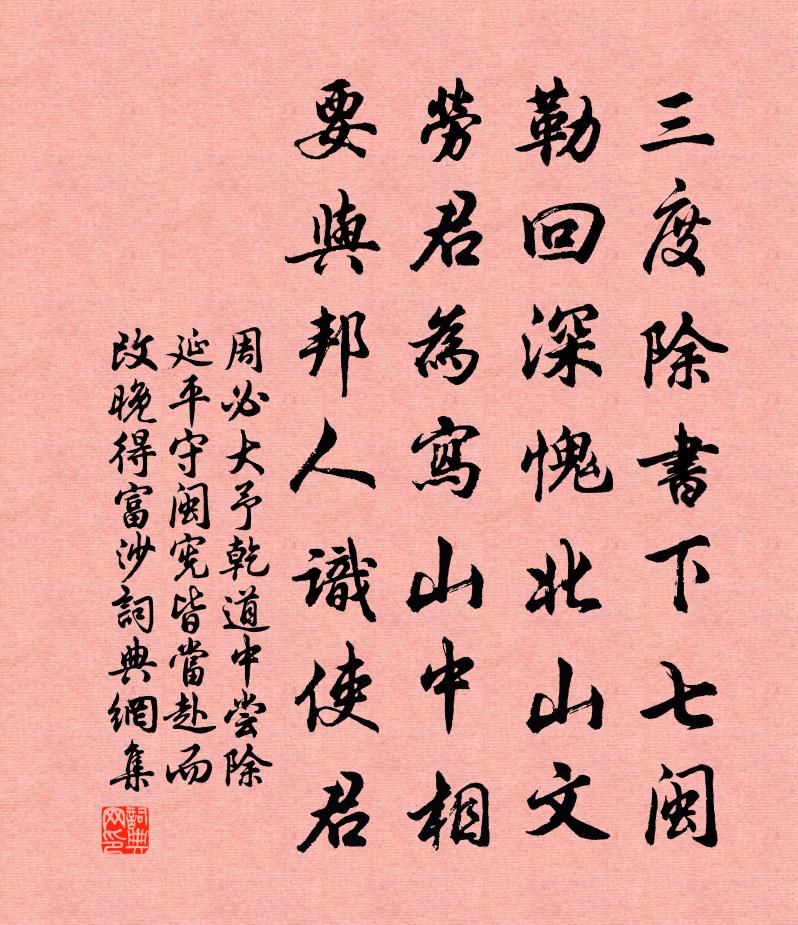 三度除書下七閩
勒回深愧北山文
勞君為寫山中相
要與邦人識使君
周必大予乾道中嘗除
延平守閩宪皆當赴而
改晚得富沙詞典網集
詞典网印